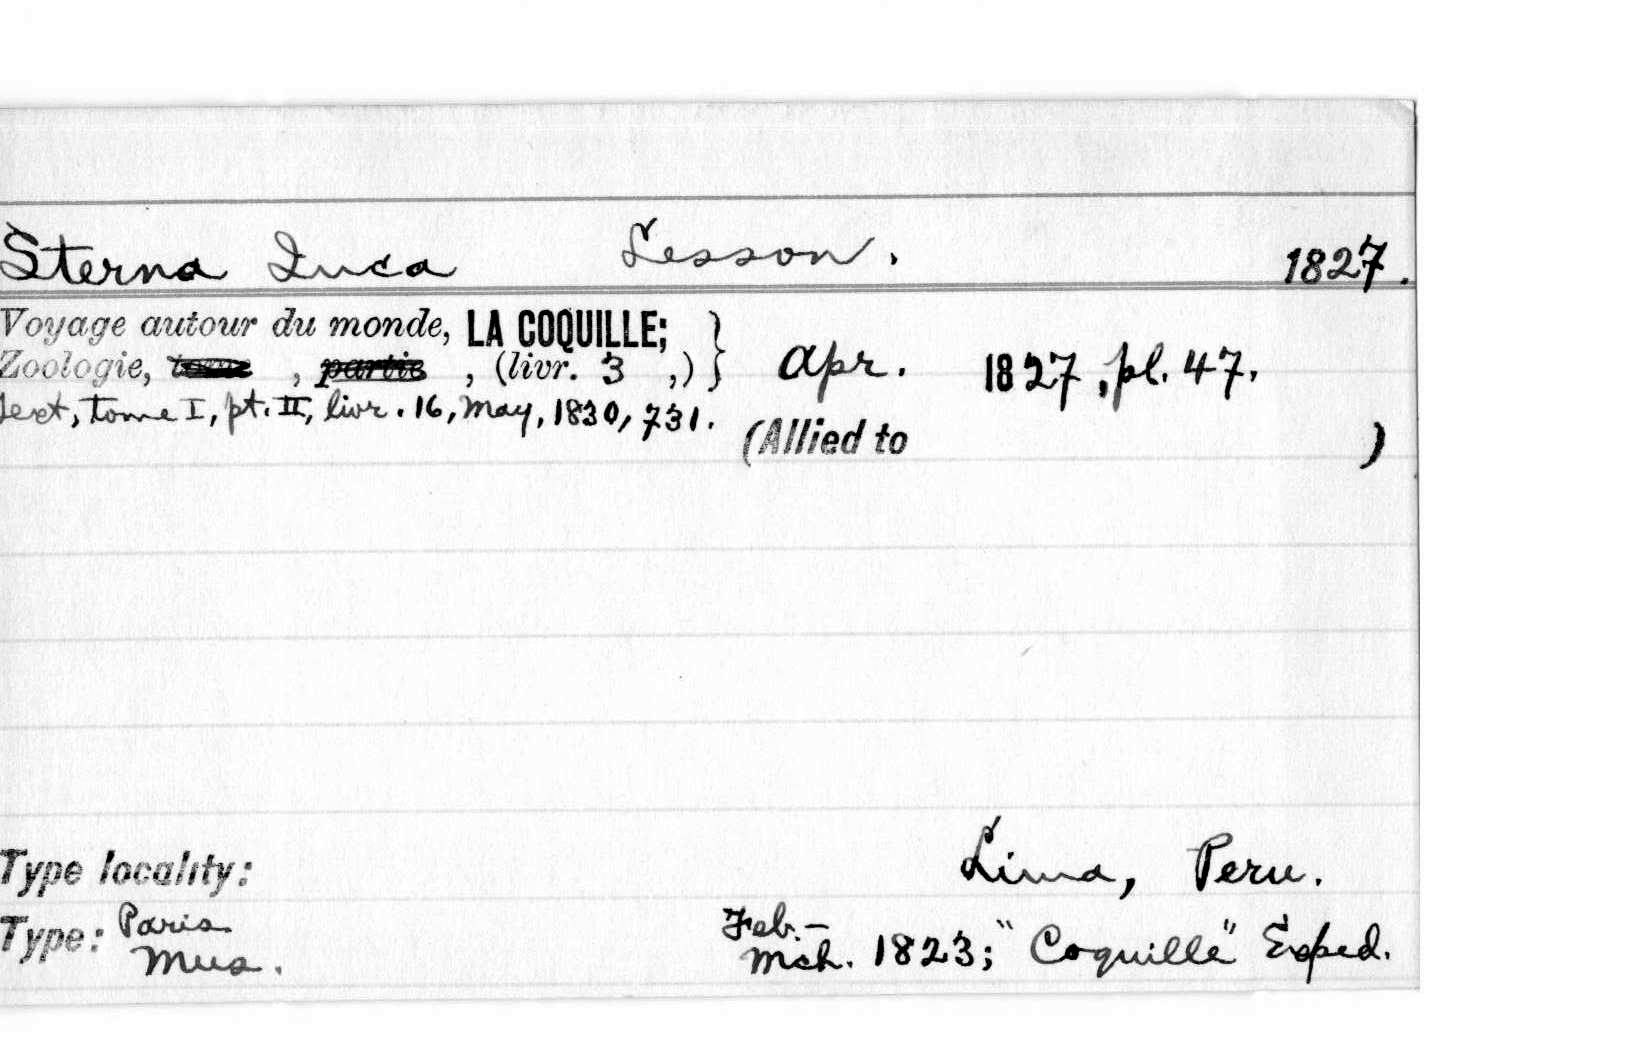 Sterna Inca Lesson. 1827.
Voyage autour du monde, LA COQUILLE;
Zoologie, tome , partie , (livr. 3 ,) } Apr. 1827, pl. 47.
Text, tome I, pt. II, livr. 16, May, 1830, 731.
(Allied to )
Type locality: Lima, Peru.
Type: Paris Mus. Feb.-
Mch. 1823; "Coquille" Exped.